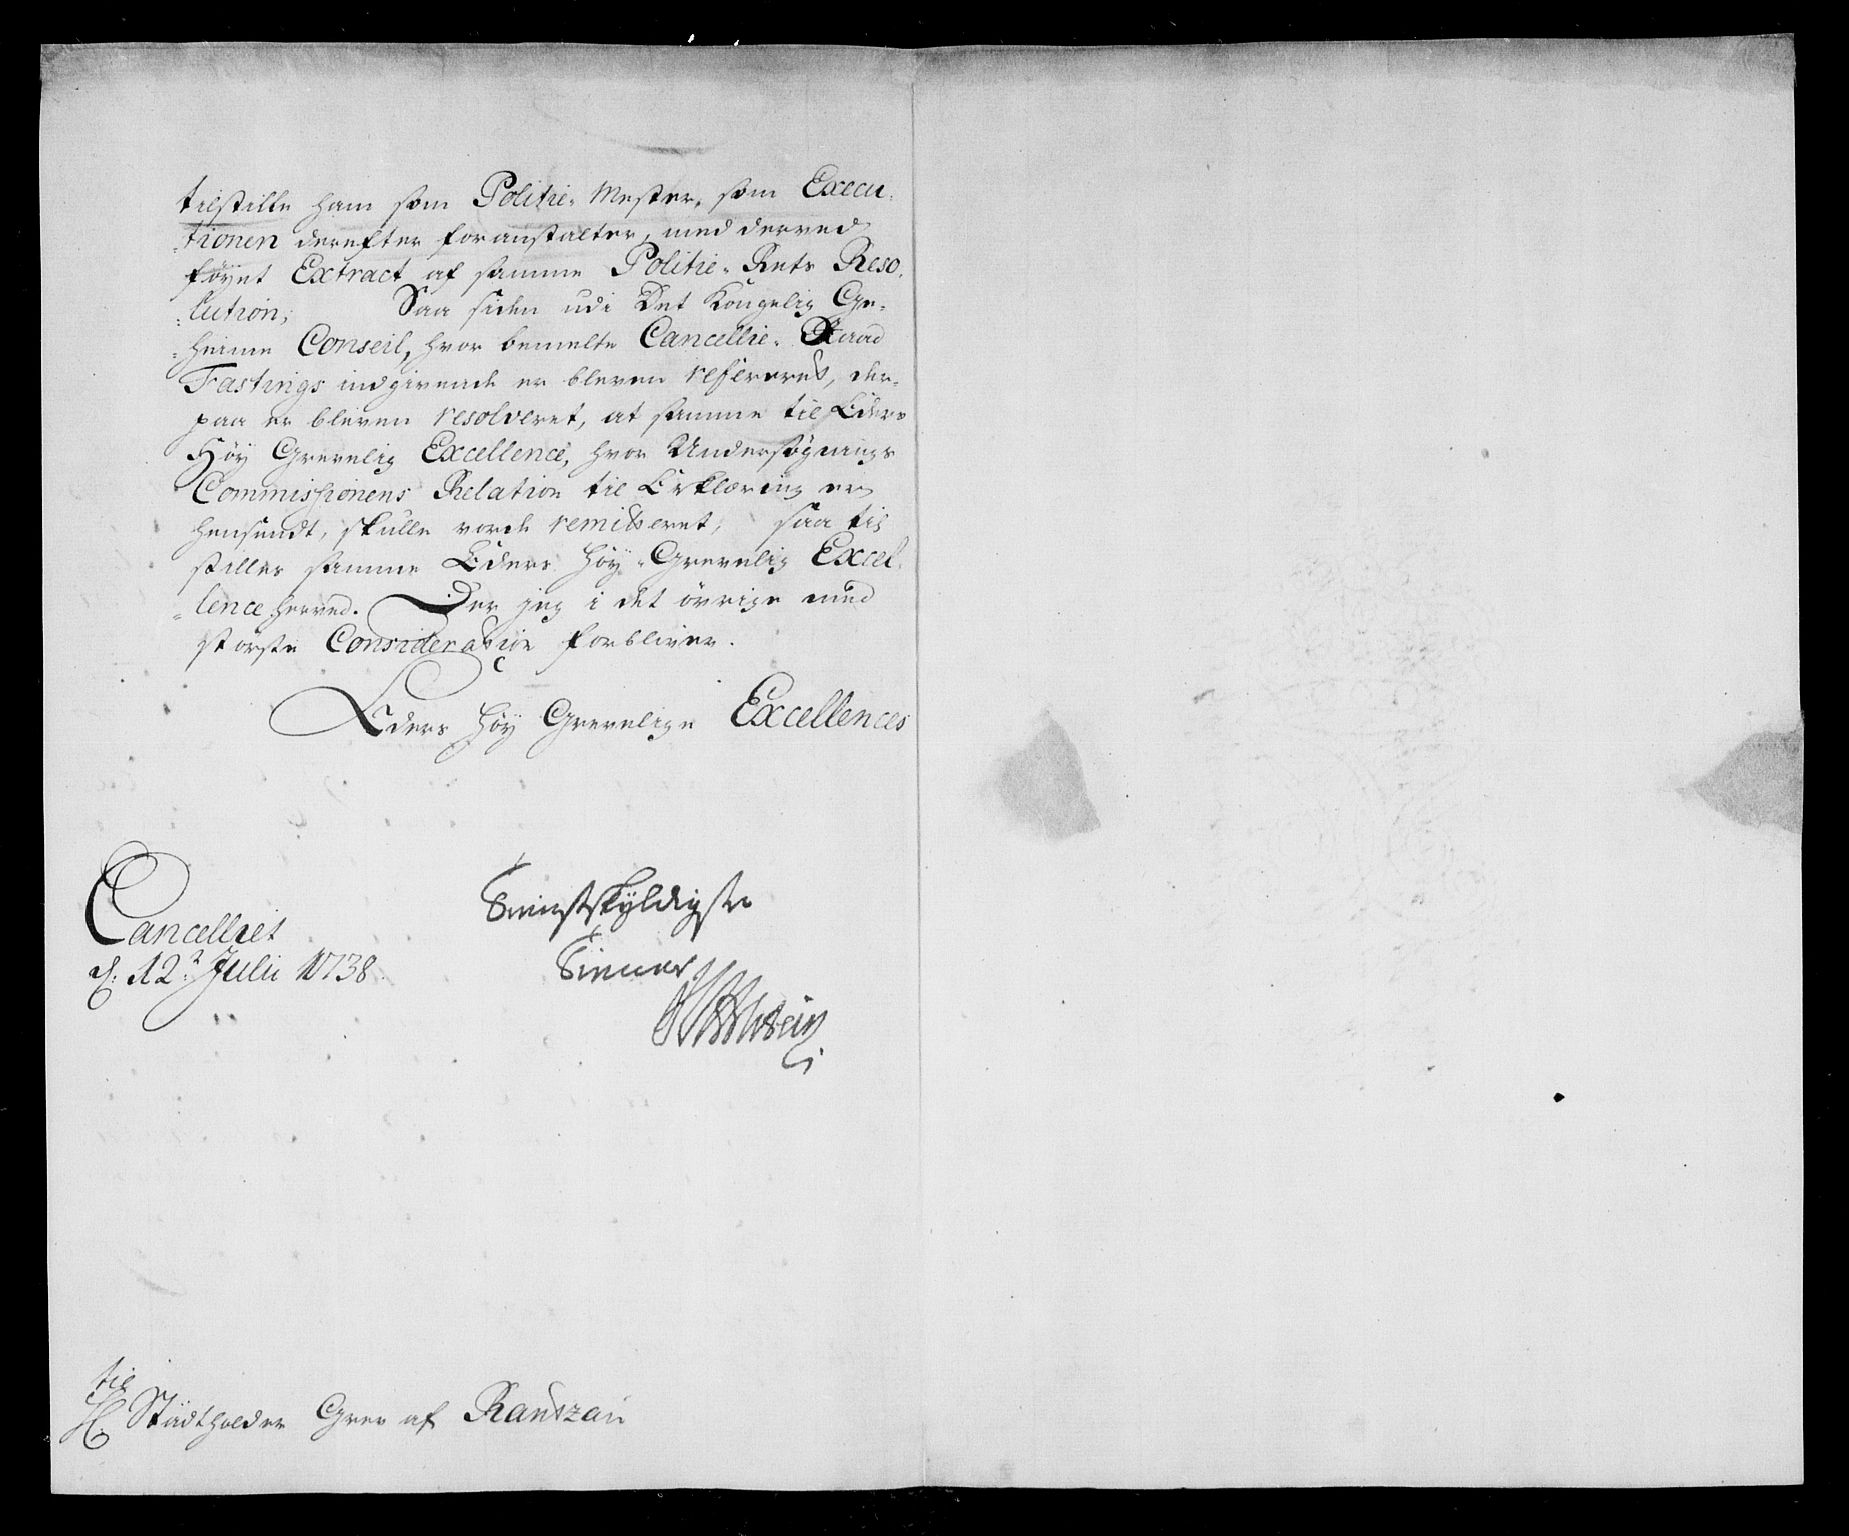 tilstille ham som Politie-Mester, som Execu-
tionen derefter foranstalter, med derved
føyet Extract af samme Politie-Rets Reso-
lution; Saa siden udi Det Kongelig Ge-
heime Conseil, hvor bemelte Cancellie-Raad
Fastings indgivende er bleven refereret, der-
paa er bleven resolveret, at samme til Eders
Høy Grevelig Excellence, hvor Undersøgnings
Commissionens Relation til Erklæring er
hensendt, skulle vorde remitteret; saa til
stilles samme Eders Høy-Grevelig Excel-
lence herved. Der jeg i det øvrige med
største Consideration forbliver.
Eders Høy Grevelige Excellences
Cancelliet
d. 12 Julii 1738
Tienstskyldigste
Tiener
til
H. Stadtholder Grev af Rantzau